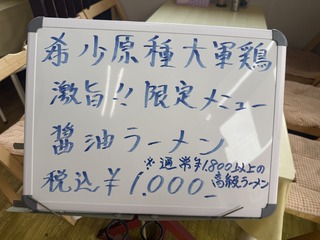 希少原種大軍鶏
激旨!! 限定メニュー
醬油ラーメン
※通常¥1,800以上の
高級ラーメン
税込¥1,000-